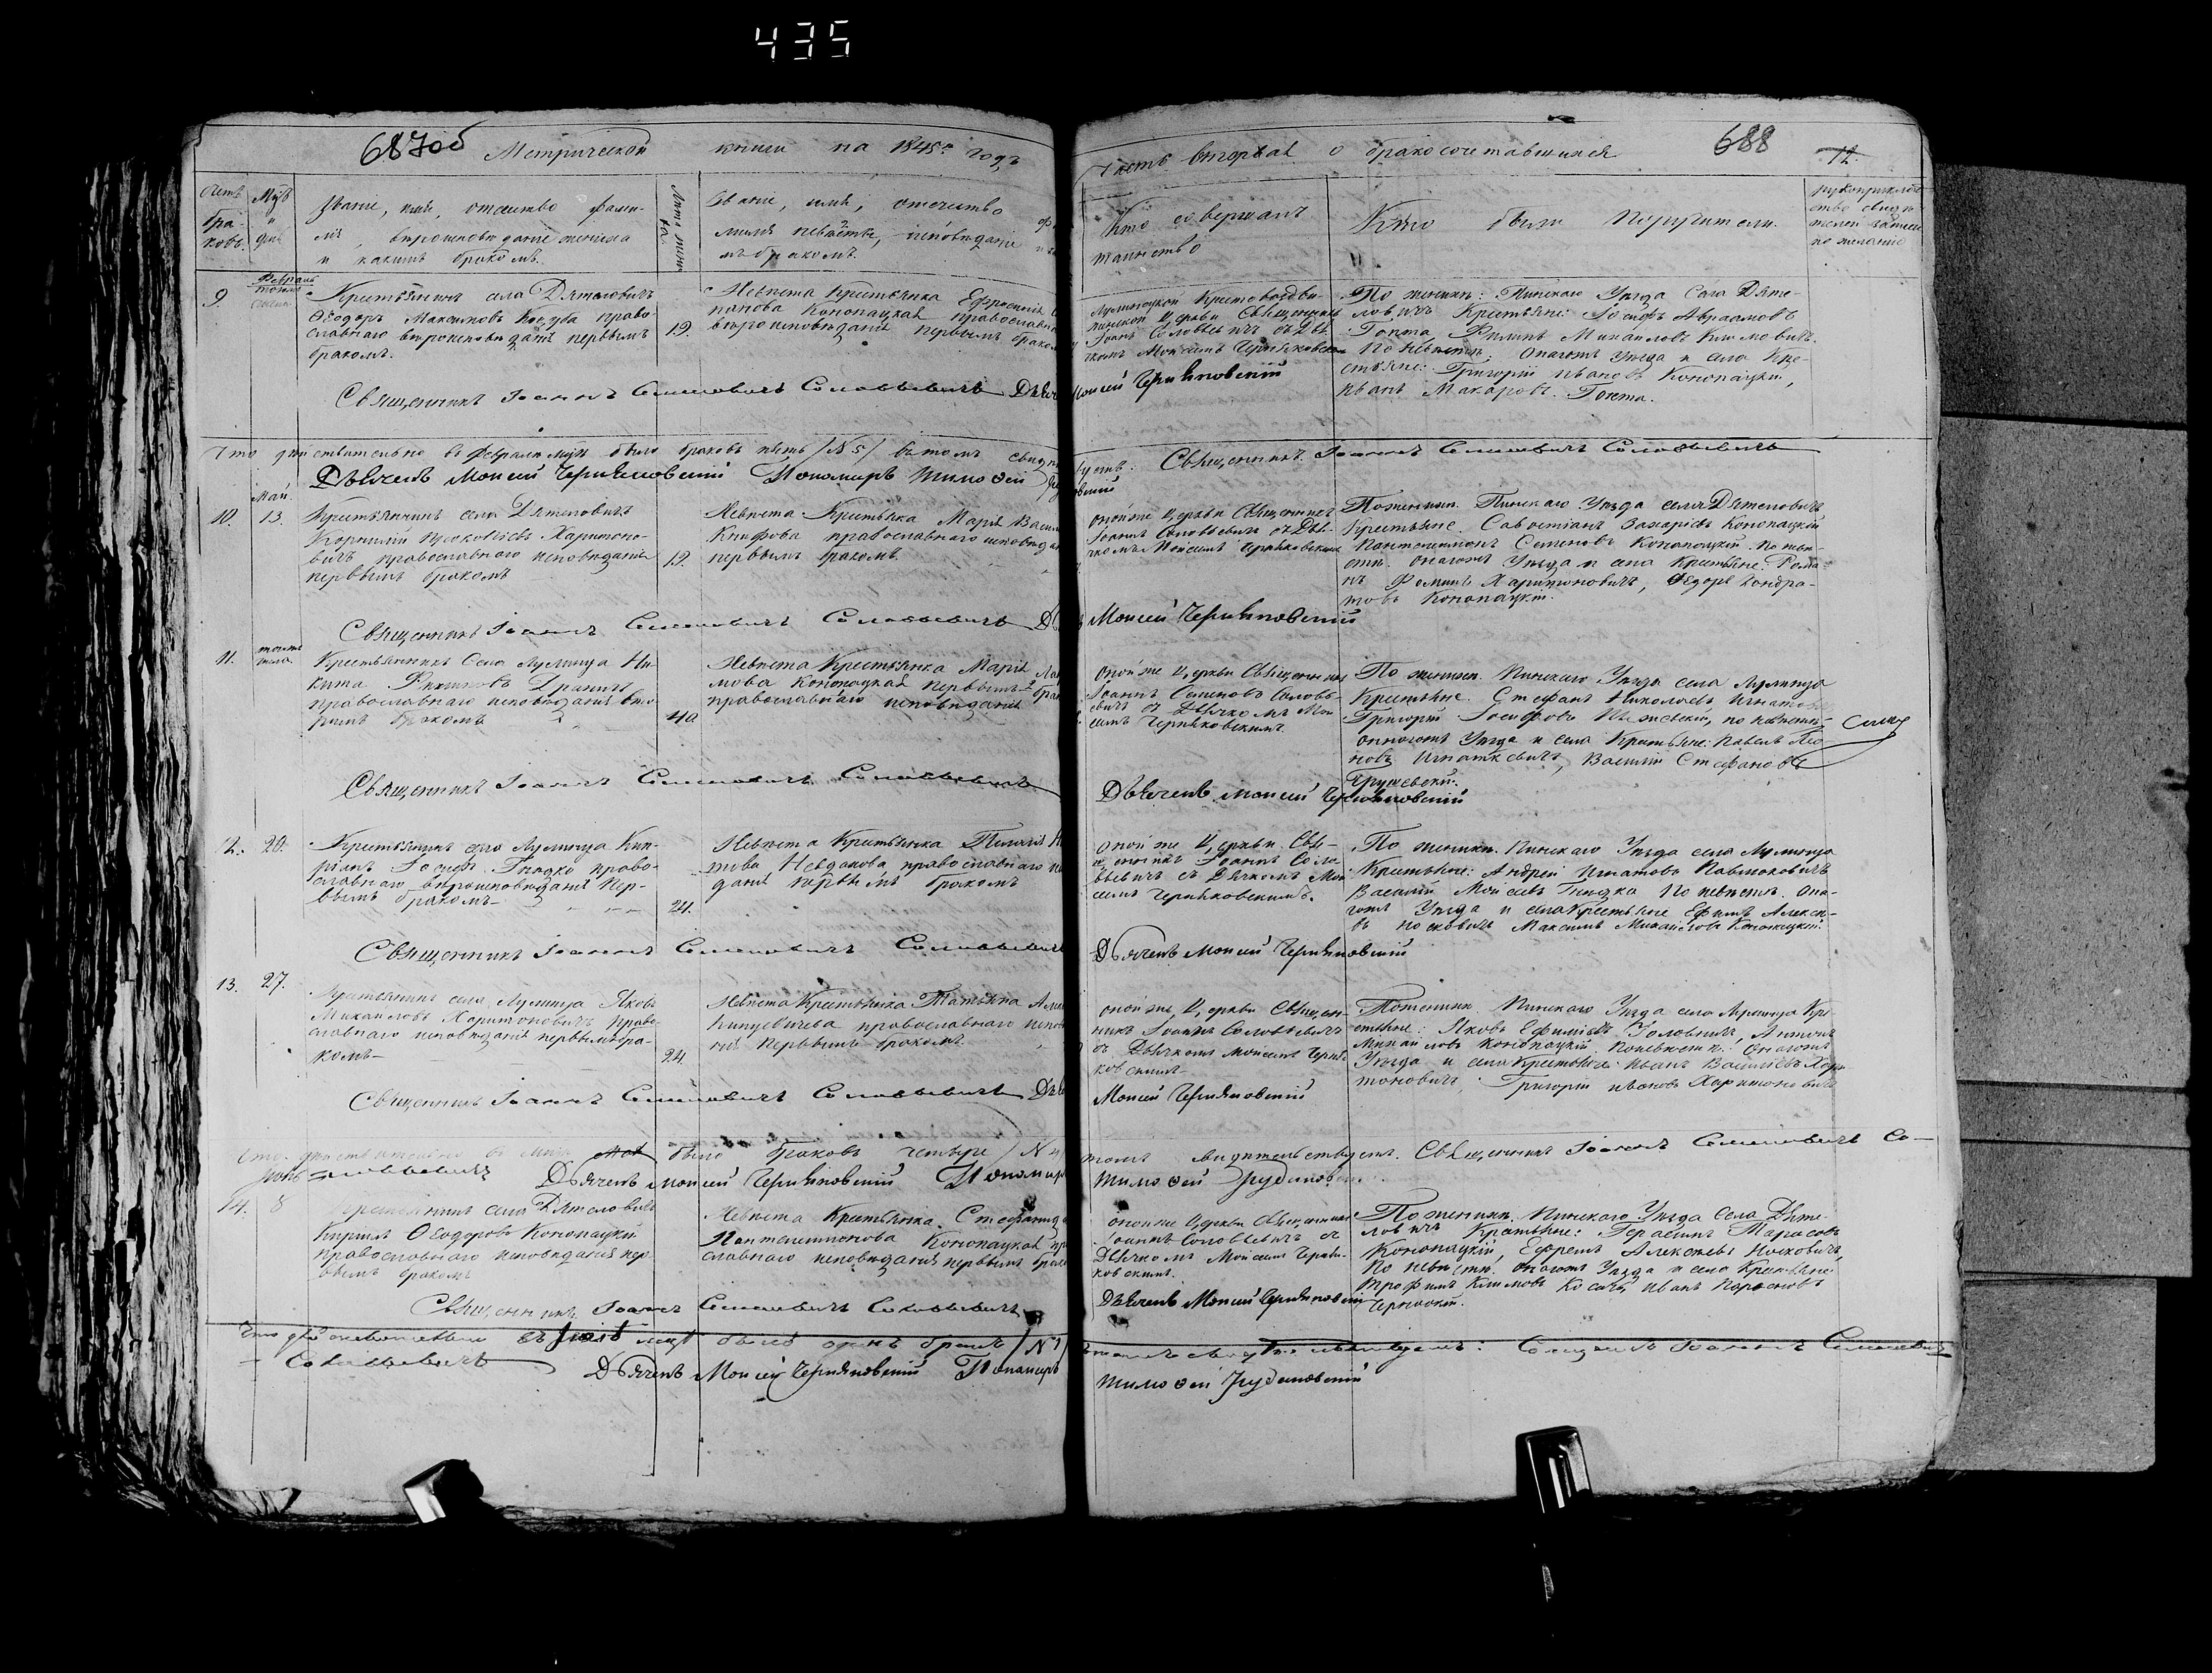 435
687об Метрической книги на 1845й годъ
Часть вторая о бракосочетавшихся 688 12.
Счетъ бра-ковъ.
Мѣсъ и дни
Званіе, имя, отчество фами-
лія, вѣроисповѣданіе жениха
и какимъ бракомъ.
Лѣта жени-ха.
Званіе, имя, отчество
милія невѣсты, исповѣданіе
мъ бракомъ.
Кто совершалъ
таинство
Кто были поручители.
рукоприкладство свидѣ-
телей записи
по желанію
9.
Февраль
Крестьянинъ села Дятеловичъ
Ѳеодоръ Максимовъ право-
славнаго вѣроисповѣданія первымъ
бракомъ.
19.
Невѣста Крестьянка Ефросинія
панова Конопацкая православна
вѣроисповѣданія первымъ брако
Лулинецкой Крестовоздви-
женской Церкви Священникъ
Іоаннъ Соловьевичъ съ Дья-
чкомъ Моисеемъ Черняковски
По женихѣ: Пинскаго Уѣзда Села Дяте-
ловичъ Крестьяне: Іосифъ Авраамовъ
Гопта Филипъ Михайловъ Климовичъ.
По невѣстѣ: онагожъ Уѣзда и села Кре-
стьяне: Григорій Ивановъ Конопацкій,
Иванъ Макаровъ Гопта.
Священникъ Іоаннъ Семеновичъ Соловьевичъ Дьяч
Моисей Черняковскій
Что дѣйствительно въ Февралѣ мцѣ было браковъ пять /№ 5/ въ томъ свидѣ
Священникъ Іоаннъ Семеновичъ Соловьевичъ
Дьячекъ Моисей Черняковскій Пономарь Тимоѳей
Май.
10. 13.
Крестьянинъ села Дятеловичъ
Корнилій Прокопіевъ Харитоно-
вичъ православнаго исповѣданія
первымъ бракомъ
19.
Невѣста Крестьянка Марія Васи
Книфова православнаго исповѣда
первымъ бракомъ
оной же Церкви Священникъ
Іоаннъ Соловьевичъ съ Дья-
чкомъ Моисеемъ Черняковским
По женихѣ. Пинскаго Уѣзда села Дятеловичъ
Крестьяне. Савостіанъ Захаріевъ Конопацкій
Пантелеимонъ Семеновъ Конопацкій. По невѣ-
стѣ. онагожъ Уѣзда и села Крестьяне. Рома-
нъ Фоминъ Харитоновичъ, Ѳедоръ Кондра-
товъ Конопацкій.
Священникъ Іоаннъ Семеновичъ Соловьевичъ
Моисей Черняковскій
11.
тогожъ числа.
Крестьянинъ Села Лулинца Ни-
кита Драничъ
православнаго исповѣданія вто-
рымъ бракомъ
40
Невѣста Крестьянка Марія
мова Конопацкая первымъ
православнаго исповѣданія
оной же Церкви Священникъ
Іоаннъ Семеновъ Соловь-
евичъ съ Дьячкомъ Мои-
сеемъ Черняковскимъ.
По женихѣ. Пинскаго Уѣзда села Лулинца
Крестьяне. Стефанъ Николаевъ Игнатов
Григорій Іосифовъ по невѣстѣ-
онагожъ Уѣзда и села Крестьяне: Павелъ Лео-
новъ Игнаткевичъ, Василій Стефановъ
Грушевскій.
Священникъ Іоаннъ Семеновичъ Соловьевичъ
Дьячекъ Моисей Черняковскій
12. 20.
Крестьянинъ села Лулинца Кип-
ріянъ Іосиф. Гнядко право-
славнаго вѣроисповѣданія пер-
вымъ бракомъ
24.
Невѣста Крестьянка Пелагія
това Невдахова православнаго
данія первымъ бракомъ
оной же Церкви Свя-
щенникъ Іоаннъ Соло-
вьевичъ съ Дьячкомъ Мои-
сеемъ Черняковскимъ.
По женихѣ. Пинскаго Уѣзда села Лулинца
Крестьяне: Андрей Игнатовъ Павлюковичъ
Василій Моисеевъ Гнядка По невѣстѣ. она-
гожъ Уѣзда и села Крестьяне Ефимъ Алексѣе-
въ Носковичъ Максимъ Михайловъ Конопацкій.
Священникъ Іоаннъ Семеновичъ Соловьевичъ
Дьячекъ Моисей Черняковскій
13. 27.
Крестьянинъ села Лулинца Яковъ
Михайловъ Харитоновичъ право-
славнаго исповѣданія первымъ бра-
комъ
24.
Невѣста Крестьянка Татьяна
православнаго испо
нія первымъ бракомъ
оной же Церкви Священ-
никъ Іоаннъ Соловьевичъ
съ Дьячкомъ Моисеемъ Черня-
ковскимъ
По женихѣ Пинскаго Уѣзда села Лулинца Кре-
стьяне: Яковъ Ефиміевъ Головничъ, Антонъ
Михайловъ Конопацкій. По невѣстѣ. Онагожъ
Уѣзда и села Крестьяне Иванъ Василіевъ Хари-
тоновичъ, Григорій Ивановъ Харитонович
Священникъ Іоаннъ Семеновичъ Соловьевичъ
Моисей Черняковскій
Что дѣйствительно въ Мцѣ Маѣ было браковъ четыре /№ 4/
томъ свидѣтельствуемъ. Священникъ Іоаннъ Семеновичъ Со-
ловьевичъ Дьячекъ Моисей Черняковскій Пономарь
Тимоѳей Грудиновск
Іюнь
14. 8
Крестьянинъ села Дятеловичъ
Кирилъ Ѳеодоровъ Конопацкій
православнаго исповѣданія пер-
вымъ бракомъ
Невѣста Крестьянка Стефанида
Пантелеимонова Конопацкая пр
славнаго исповѣданія первымъ брако
оной же Церкви Священникъ
Іоаннъ Соловьевичъ съ
Дьячкомъ Моисеемъ Черня-
ковскимъ.
По женихѣ. Пинскаго Уѣзда Села Дяте-
ловичъ Крестьяне: Герасимъ Тарасовъ
Конопацкій, Ефремъ Алексѣевъ Носковичъ,
По невѣстѣ. онагожъ Уѣзда и села Крестьяне
Трофимъ Климовъ Косачъ, Иванъ
Священникъ Іоаннъ Семеновичъ Соловьевичъ
Дьячекъ Моисей Черняковскій
Что дѣйствительно въ Іюнѣ мцѣ былъ одинъ бракъ /№ 1/
въ томъ свидѣтельствуемъ: Священникъ Іоаннъ Семеновичъ
Соловьевичъ Дьячекъ Моисей Черняковскій Пономарь
Тимоѳей Грудиновскій